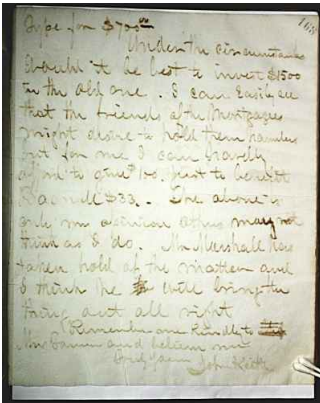 168
type for $700.00
Under the circumstances
would it be best to invest $1500
in the old one. I can easily see
that the friends of the Mortgages
might desire to hold them
but for me I can hardly
afford to give 100. just to benefit
$33. - The above is
only my opinion others may not
think as I do. Mr Marshall has
taken hold of the matter and
I think he will bring the
thing out all right
Remember me kindly to
Mrs and believe me
John Keith